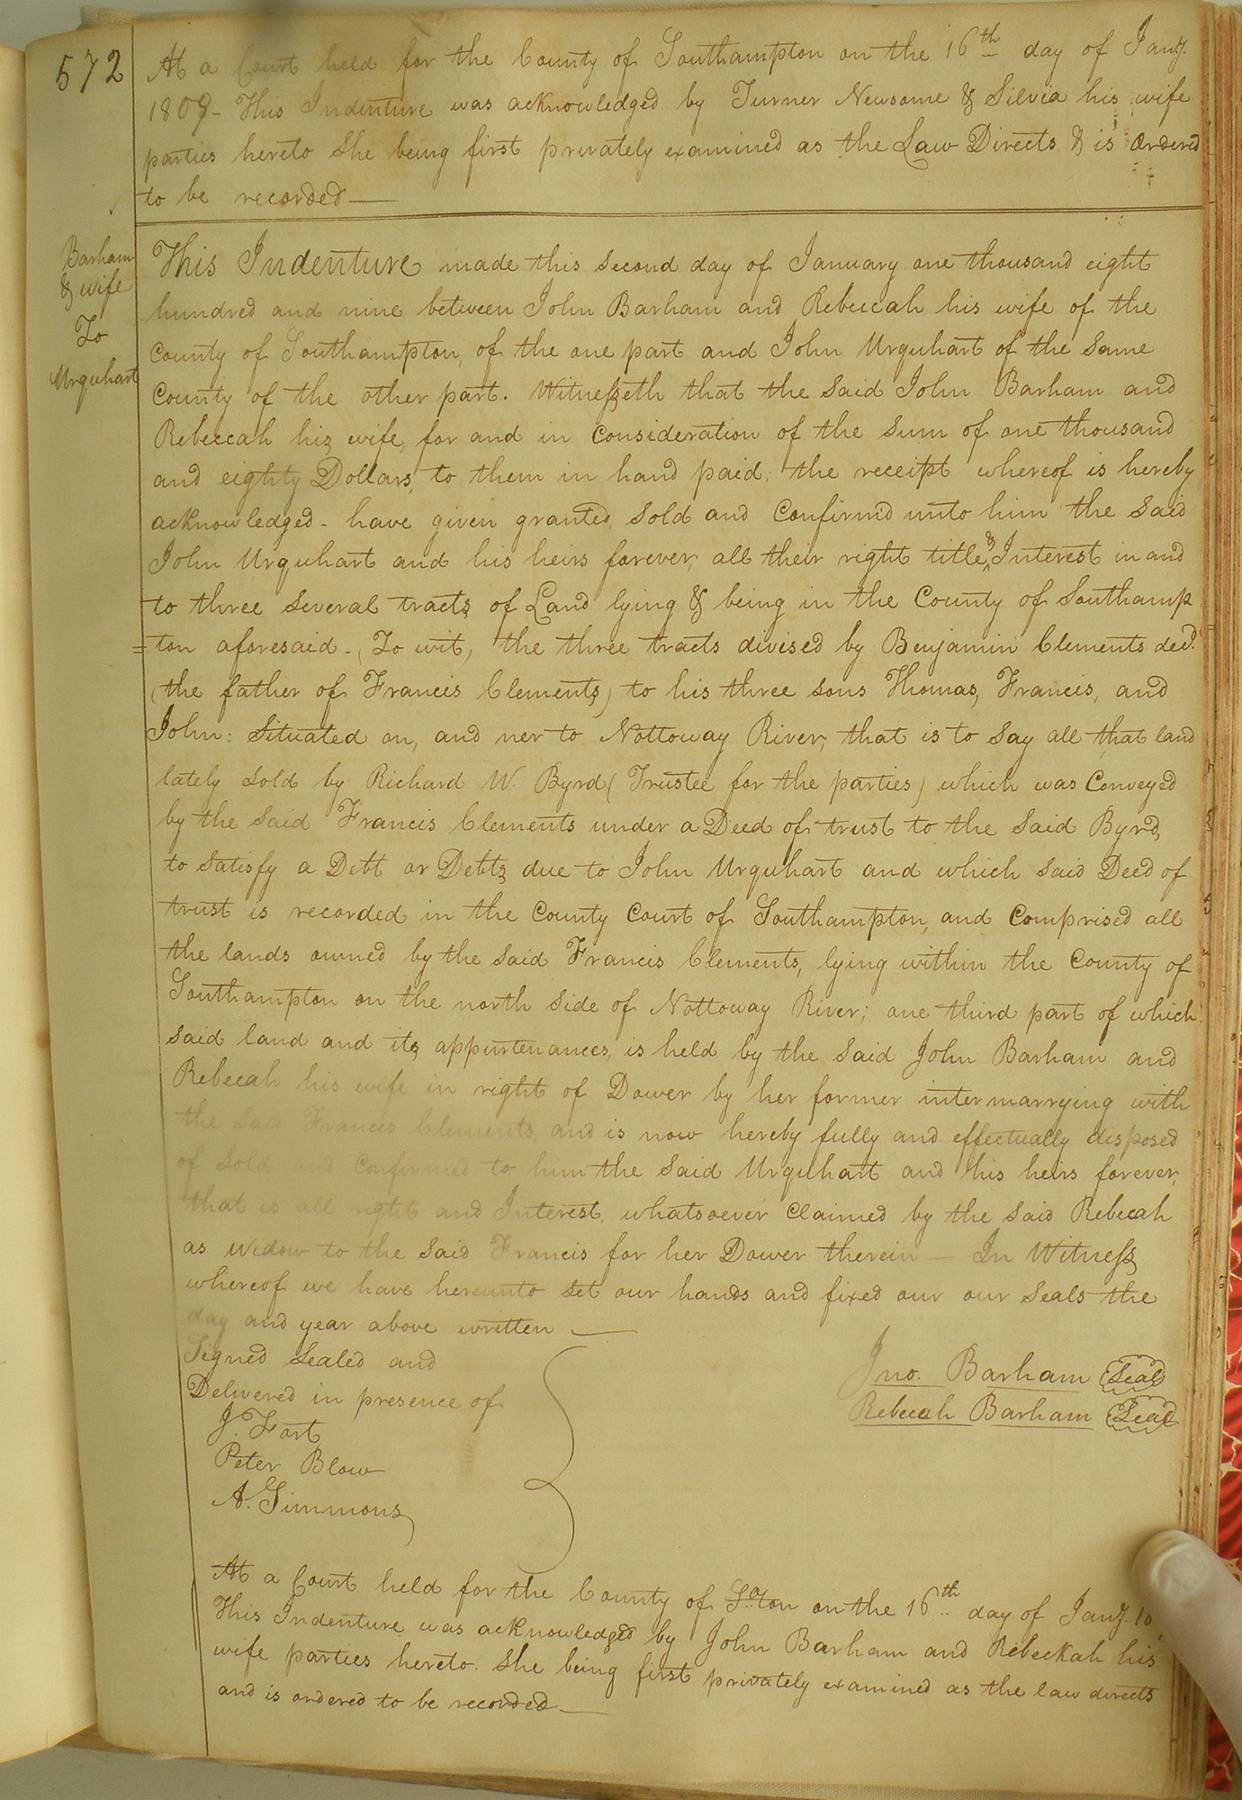 572
At a Court held for the County of Southampton on the 16th day of Jany.
1809- This Indenture was acknowledged by Turner Newsome & Silvia his wife
parties hereto She being first privately examined as the Law Directs & is ordered
to be recorded—
Barham
& wife
To
Urquhart
This Indenture made this second day of January one thousand eight
hundred and nine between John Barham and Rebeccah his wife of the
County of Southampton, of the one part and John Urquhart of the Same
County of the other part. Witnesseth that the said John Barham and
Rebeccah his wife, for and in Consideration of the Sum of one thousand
and eighty Dollars, to them in hand paid; the receipt whereof is hereby
acknowledged - have given granted, sold and Confirmd unto him the Said
John Urquhart and his heirs forever, all their right title, & Interest in and
to three Several tracts of Land lying & being in the County of Southamp
=ton aforesaid. (To wit, the three tracts divised by Benjamin Clements decd.
(the father of Francis Clements) to his three sons Thomas, Francis, and
John: Situated on, and ner to Nottoway River, that is to Say all that land
lately Sold by Richard W. Byrd (Trustee for the parties) which was Conveyed
by the said Francis Clements under a Deed of trust to the Said Byrd,
to Satisfy a Debt or Debts due to John Urquhart and which said Deed of
trust is recorded in the County Court of Southampton, and Comprised all
the lands owned by the said Francis Clements, lying within the County of
Southampton on the north Side of Nottoway River; one third part of which
said land and its appurtenances, is held by the Said John Barham and
Rebecah his wife in right of Dower by her former intermarrying with
the said Francis Clements, and is now hereby fully and effectually disposed
of Sold and Confirmed to him the Said Urquhart and his heirs forever,
that is all right and Interest, whatsoever Claimed by the Said Rebecah
as widow to the Said Francis for her Dower therein — In Witness
whereof we have hereunto Set our hands and fixed our our Seals the
day and year above written —
Signed Sealed and
Delivered in presence of
J. Fort
Peter Blow
A. Simmons
Jno. Barham Seal
Rebecah Barham Seal
At a Court held for the County of So.ton on the 16th day of Jany. 10
This Indenture was acknowledged by John Barham and Rebeckah his
wife parties hereto. She being first privately examined as the law directs
and is ordered to be recorded—